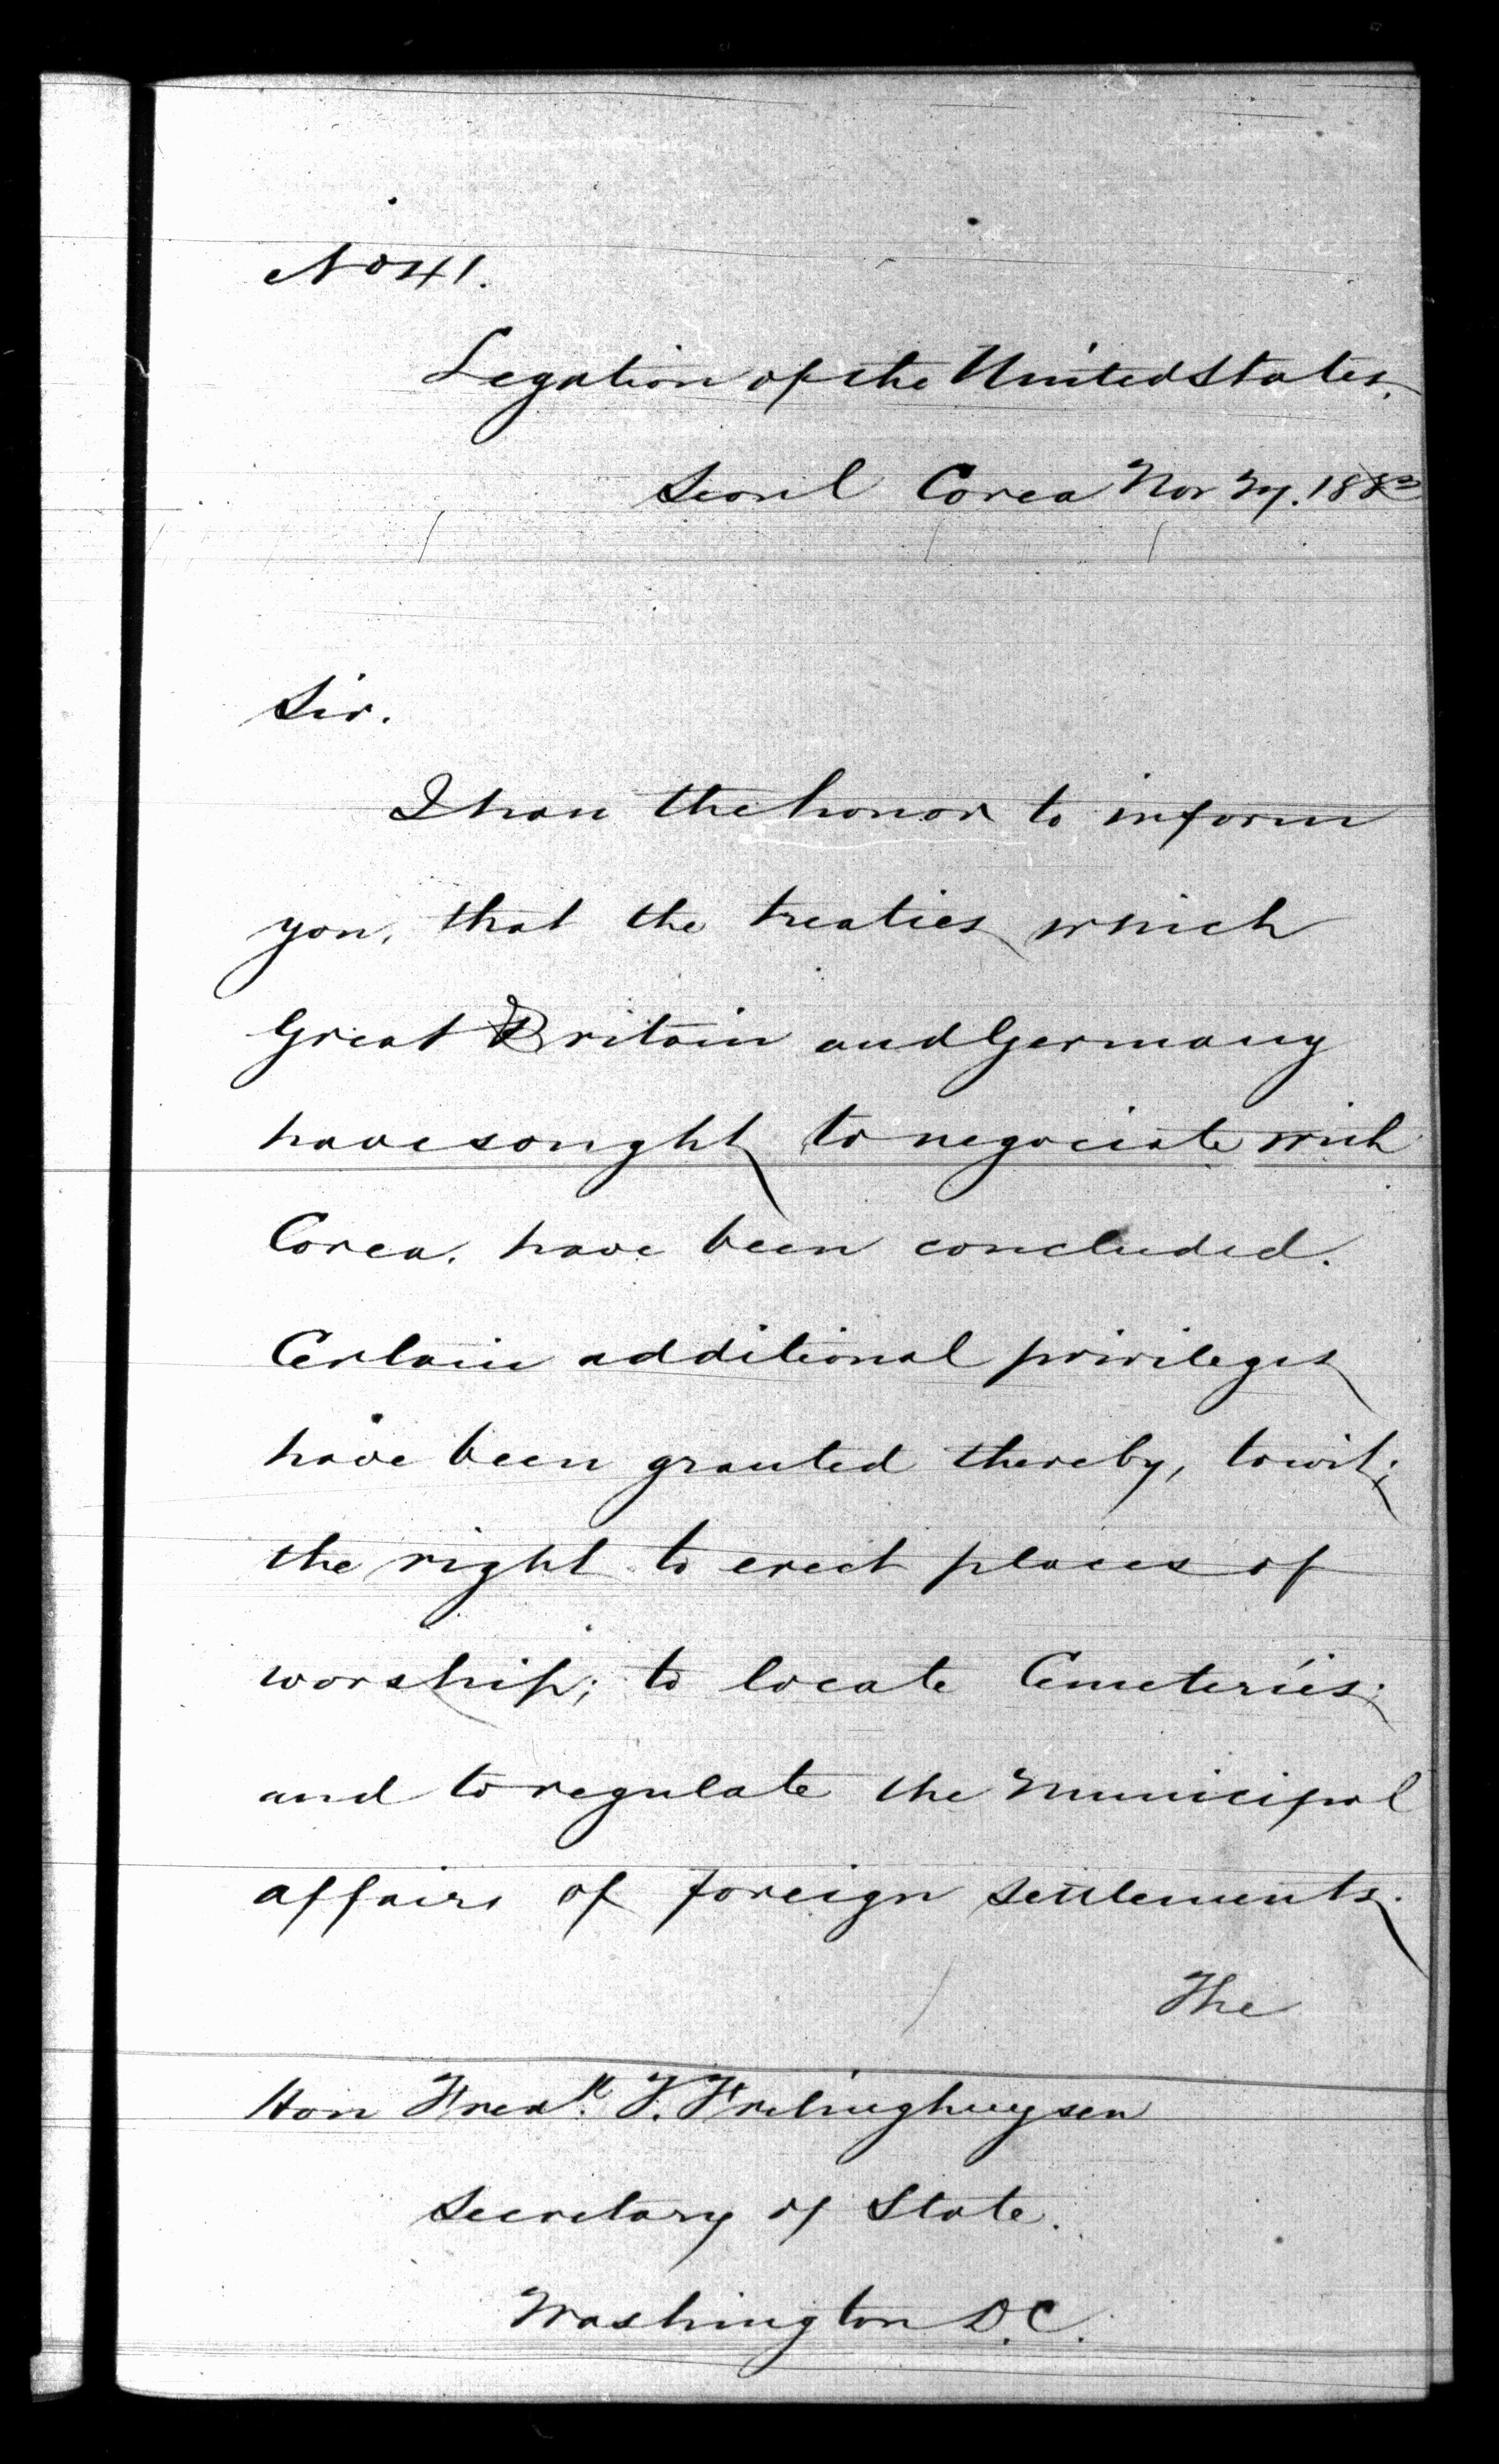 No 41.
Legation of the United States.
Seoul Corea Nov 27. 1883
Sir.
I have the honor to inform
you, that the treaties which
Great Britain and Germany
have sought to negociate with
Corea, have been concluded.
Certain additional privileges
have been granted thereby, towit;
the right to erect places of
worship; to locate Cemeteries;
and to regulate the Municipal
affairs of foreign settlements.
The
Hon Fredk. T. Frelinghuysen
Secretary of State.
Washington D.C.